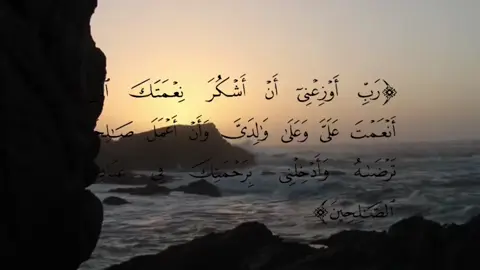 ﴿رَبِّ أَوْزِعْنِىٓ أَنْ أَشْكُرَ نِعْمَتَكَ
أَنْعَمْتَ عَلَىَّ وَعَلَىٰ وَٰلِدَىَّ وَأَنْ أَعْمَلَ
تَرْضَىٰهُ وَأَدْخِلْنِى بِرَحْمَتِكَ فِى
ٱلصَّـٰلِحِينَ﴾